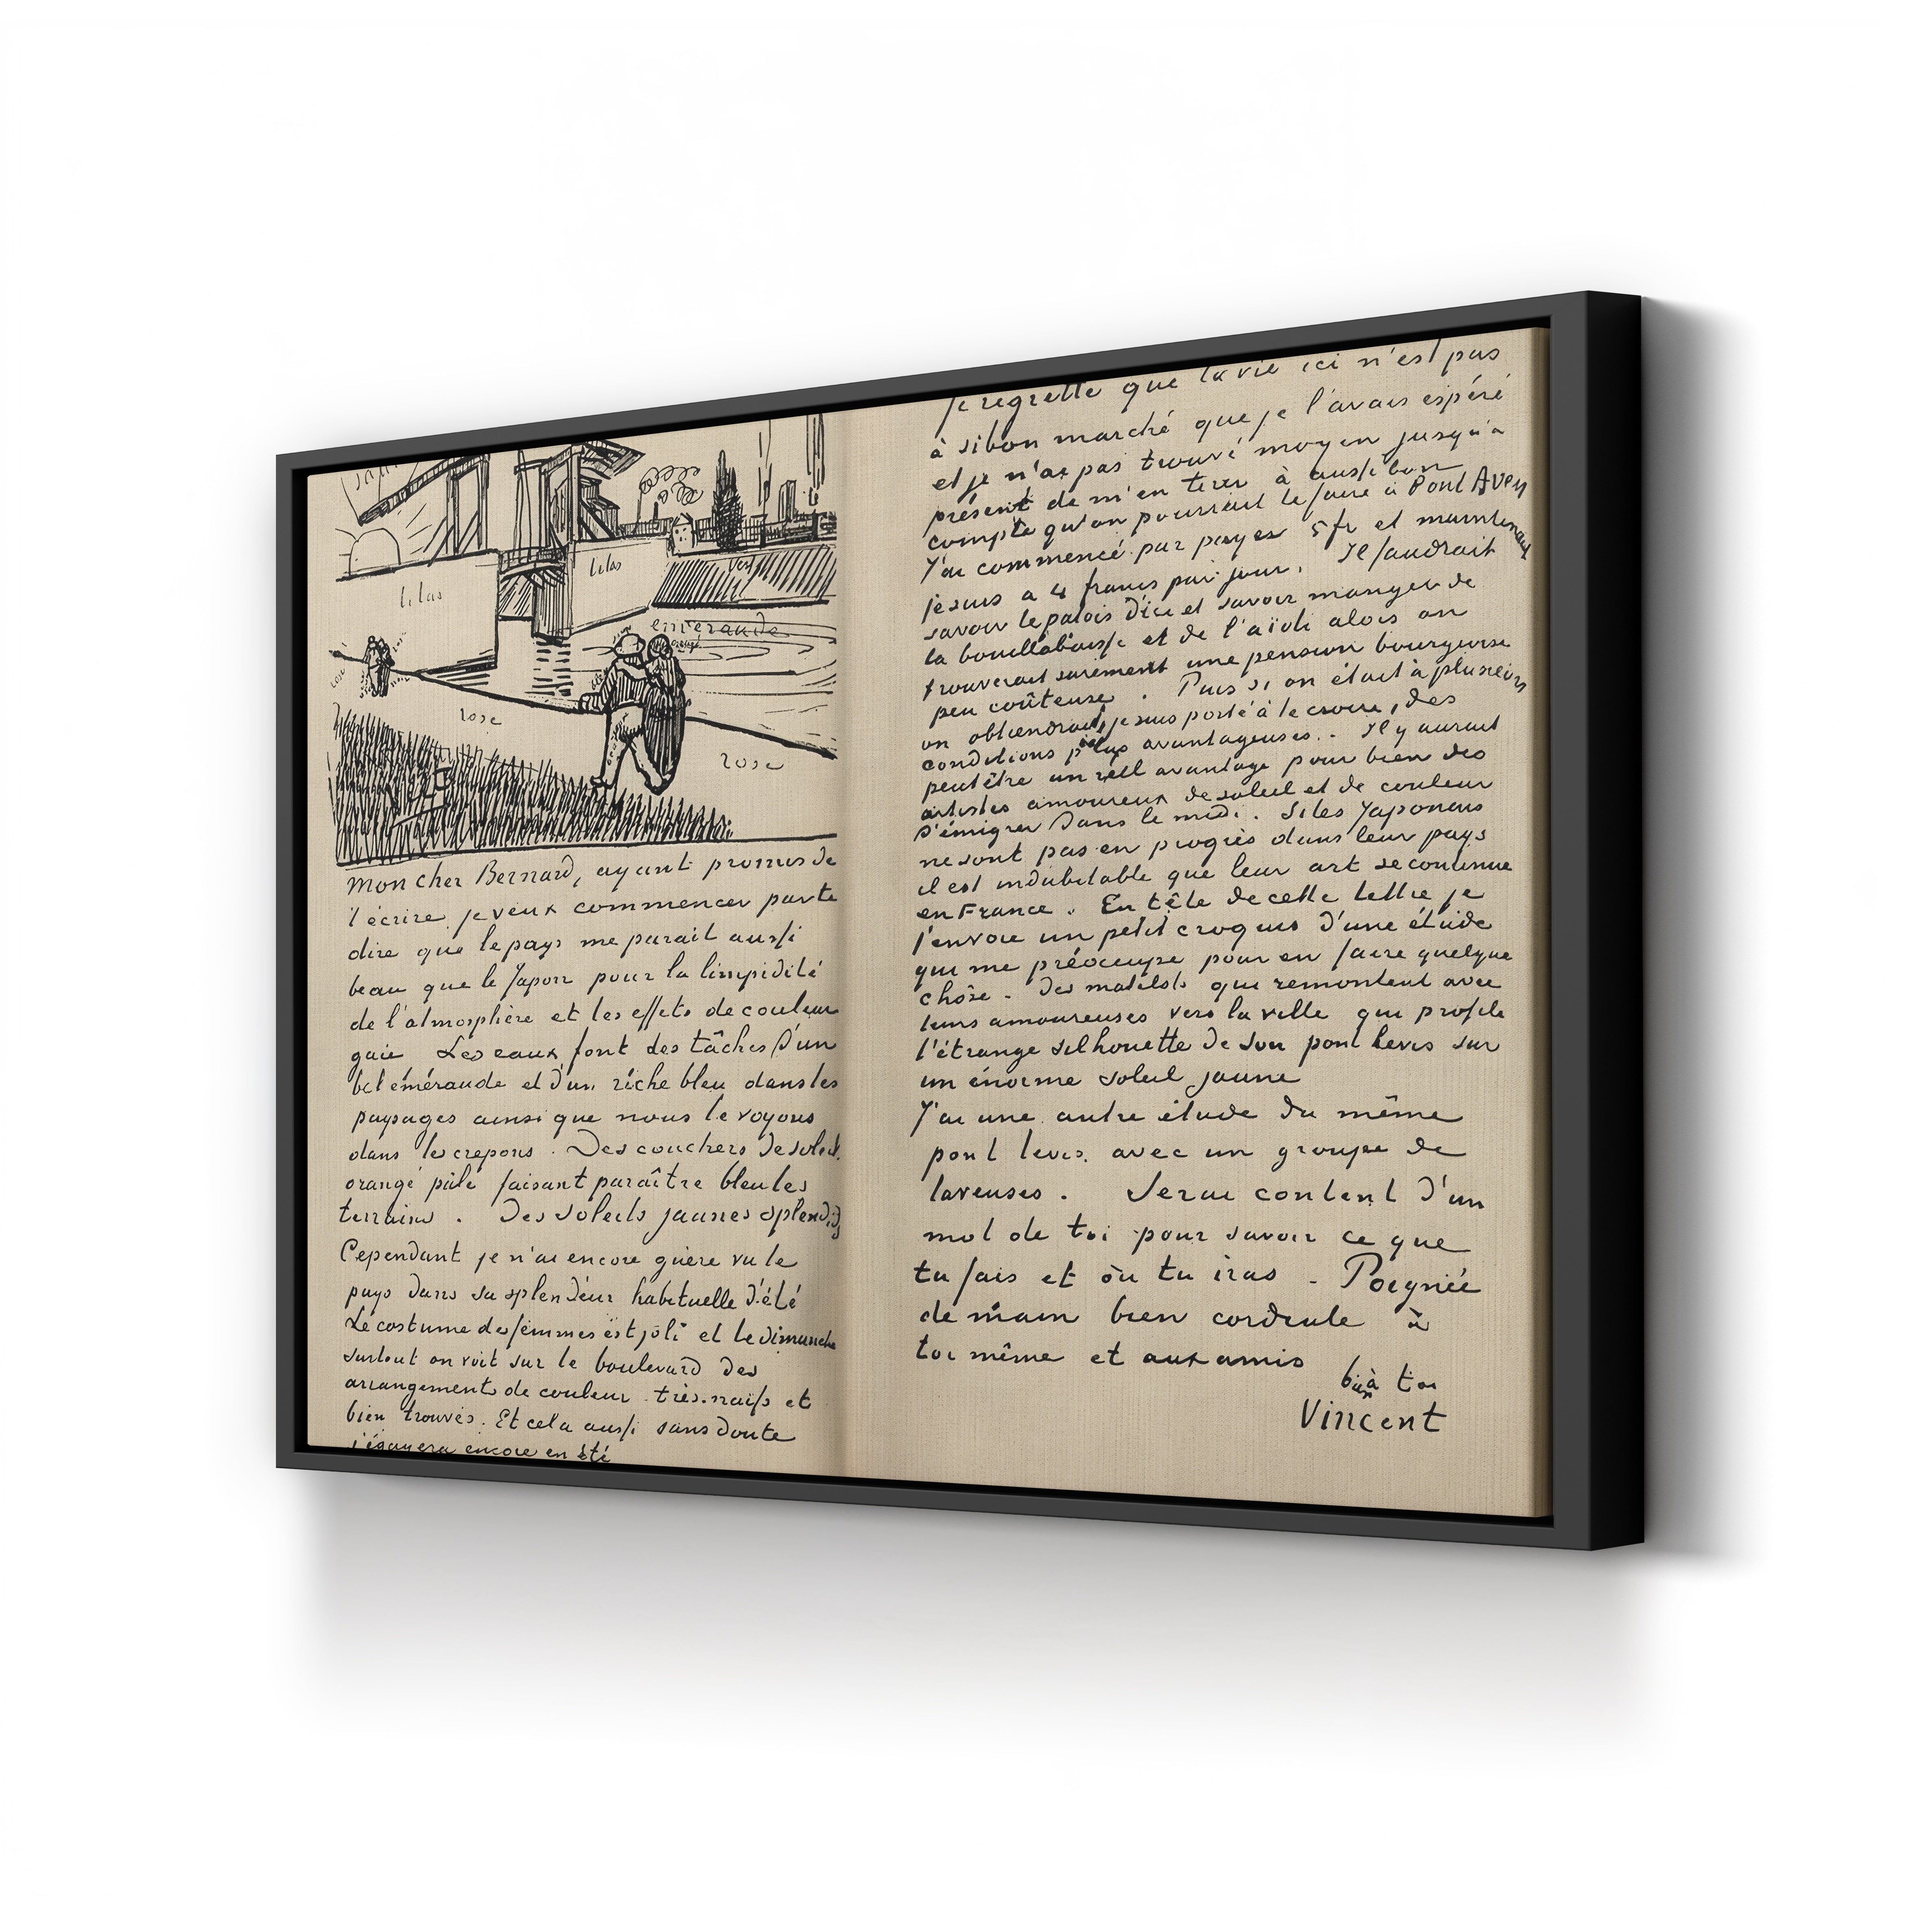 lilas
lilas
vert
emeraude
rose
rose
rose
mon cher Bernard, ayant promis de
t'écrire je veux commencer par te
dire que le pays me parait aussi
beau que le Japon pour la limpidité
de l'atmosphère et les effets de couleur
gaie Les eaux font des tâches d'un
bel émeraude et d'un riche bleu dans les
paysages ainsi que nous le voyons
dans les crepons. Des couchers de soleil
orangé pâle faisant paraître bleu les
terrains. Des soleils jaunes splendides
Cependant je n'ai encore guère vu le
pays dans sa splendeur habituelle d'été
Le costume des femmes est joli et le dimanche
surtout on voit sur le boulevard des
arrangements de couleur très naifs et
bien trouvés. Et cela aussi sans doute
s'égayera encore en été
Je regrette que la vie ici n'est pas
à si bon marché que je l'avais espéré
et je n'ai pas trouvé moyen jusqu'à
présent de m'en tirer à aussi bon
compte qu'on pourrait le faire à Pont Aven
J'ai commencé par payer 5 fr et maintenant
je suis a 4 francs par jour. Il faudrait
savoir le patois d'ici et savoir manger de
la bouillabaisse et de l'aïoli alors on
trouverait surement une pension bourgeoise
peu coûteuse. Puis si on était à plusieurs
on obtiendrait, je suis porté à le croire, des
conditions plus avantageuses. Il y aurait
peutêtre un réél avantage pour bien des
artistes amoureux de soleil et de couleur
d'émigrer dans le midi. Si les Japonais
ne sont pas en progrès dans leur pays
il est indubitable que leur art se continue
en France. En tête de cette lettre je
t'envoie un petit croquis d'une étude
qui me préoccupe pour en faire quelque
chôse - Des matelots qui remontent avec
leurs amoureuses vers la ville qui profile
l'étrange silhouette de son pont levis sur
un énorme soleil jaune
J'ai une autre étude du même
pont levis. avec un groupe de
laveuses. Serai content d'un
mot de toi pour savoir ce que
tu fais et où tu iras - Poignée
de main bien cordiale à
toi même et aux amis
bien à toi
Vincent